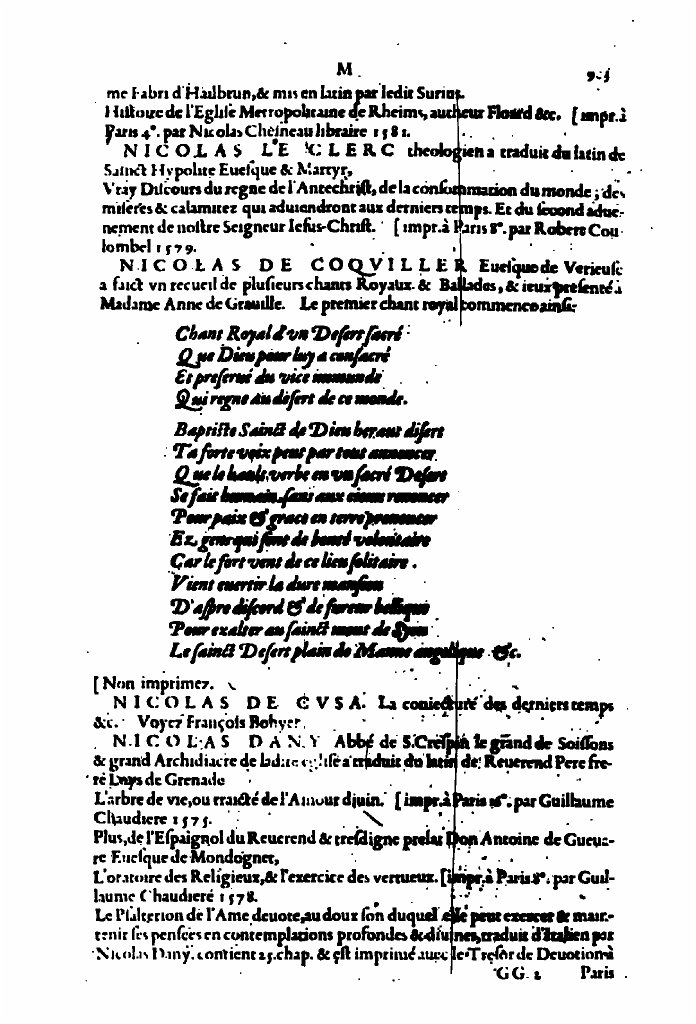 M
me Fabri d'Hailbrun,& mis en latin par ledit Surius.
Histoire de l'Eglise Metropolitaine de Rheims, autheur Floard &c. [impr.à
Paris 4°. par Nicolas Chesneau libraire 1581.
NICOLAS LE CLERC theologien a traduit du latin de
Sainct Hypolite Euesque & Martyr,
Vray Discours du regne de l'Antechrist, de la consommation du monde, des
miseres & calamitez qui aduiendront aux derniers temps. Et du second adue-
nement de nostre Seigneur Iesus-Christ. [impr.à Paris 8°. par Robert Cou
lombel 1579.
NICOLAS DE COQVILLER Euesque de Verieuse
a faict vn recueil de plusieurs chants Royaux & Ballades, & iceux presenté à
Madame Anne de Grauille. Le premier chant royal commence ainsi:
Chant Royal d'vn Desert sacré
Que Dieu pour luy a consacré
Et preserué du vice immunde
Qui regne au desert de ce monde.
Baptiste Sainct de Dieu heraut disert
Ta forte voix peut par tout annoncer
Que le hault verbe en vn sacré Desert
Se fait humain, sans aux cieux renoncer
Pour paix & grace en terre prononcer
Ez gens qui sont de bonté volontaire
Car le fort vent de ce lieu solitaire.
Vient euertir la dure mansion
D'aspre discord & de fureur bellique
Pour exalter au sainct mont de Syon
Le sainct Desert plain de Manne angelique &c.
[Non imprimez.
NICOLAS DE CVSA. La coniecture des derniers temps
&c. Voyez François Bohyer.
NICOLAS DANY Abbé de S.Crespin le grand de Soissons
& grand Archidiacre de ladite eglise a traduit du latin de Reuerend Pere fre-
re Luys de Grenade
L'arbre de vie, ou traicté de l'Amour diuin. [impr.à Paris 16°. par Guillaume
Chaudiere 1575.
Plus, de l'Espaignol du Reuerend & tresdigne prelat Don Antoine de Gueua-
re Euesque de Mondognet,
L'oratoire des Religieux,& l'exercice des vertueux. [impr.à Paris 8°. par Guil-
laume Chaudiere 1578.
Le Psalterion de l'Ame deuote, au doux son duquel elle peut exercer & main-
tenir ses pensées en contemplations profondes & diuines, traduit d'Italien par
Nicolas Dany. contient 25.chap. & est imprimé auec le Tresor de Deuotion à
GG. 2 Paris